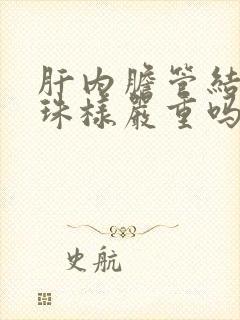 肝内胆管結
珠樣嚴重吗
史航